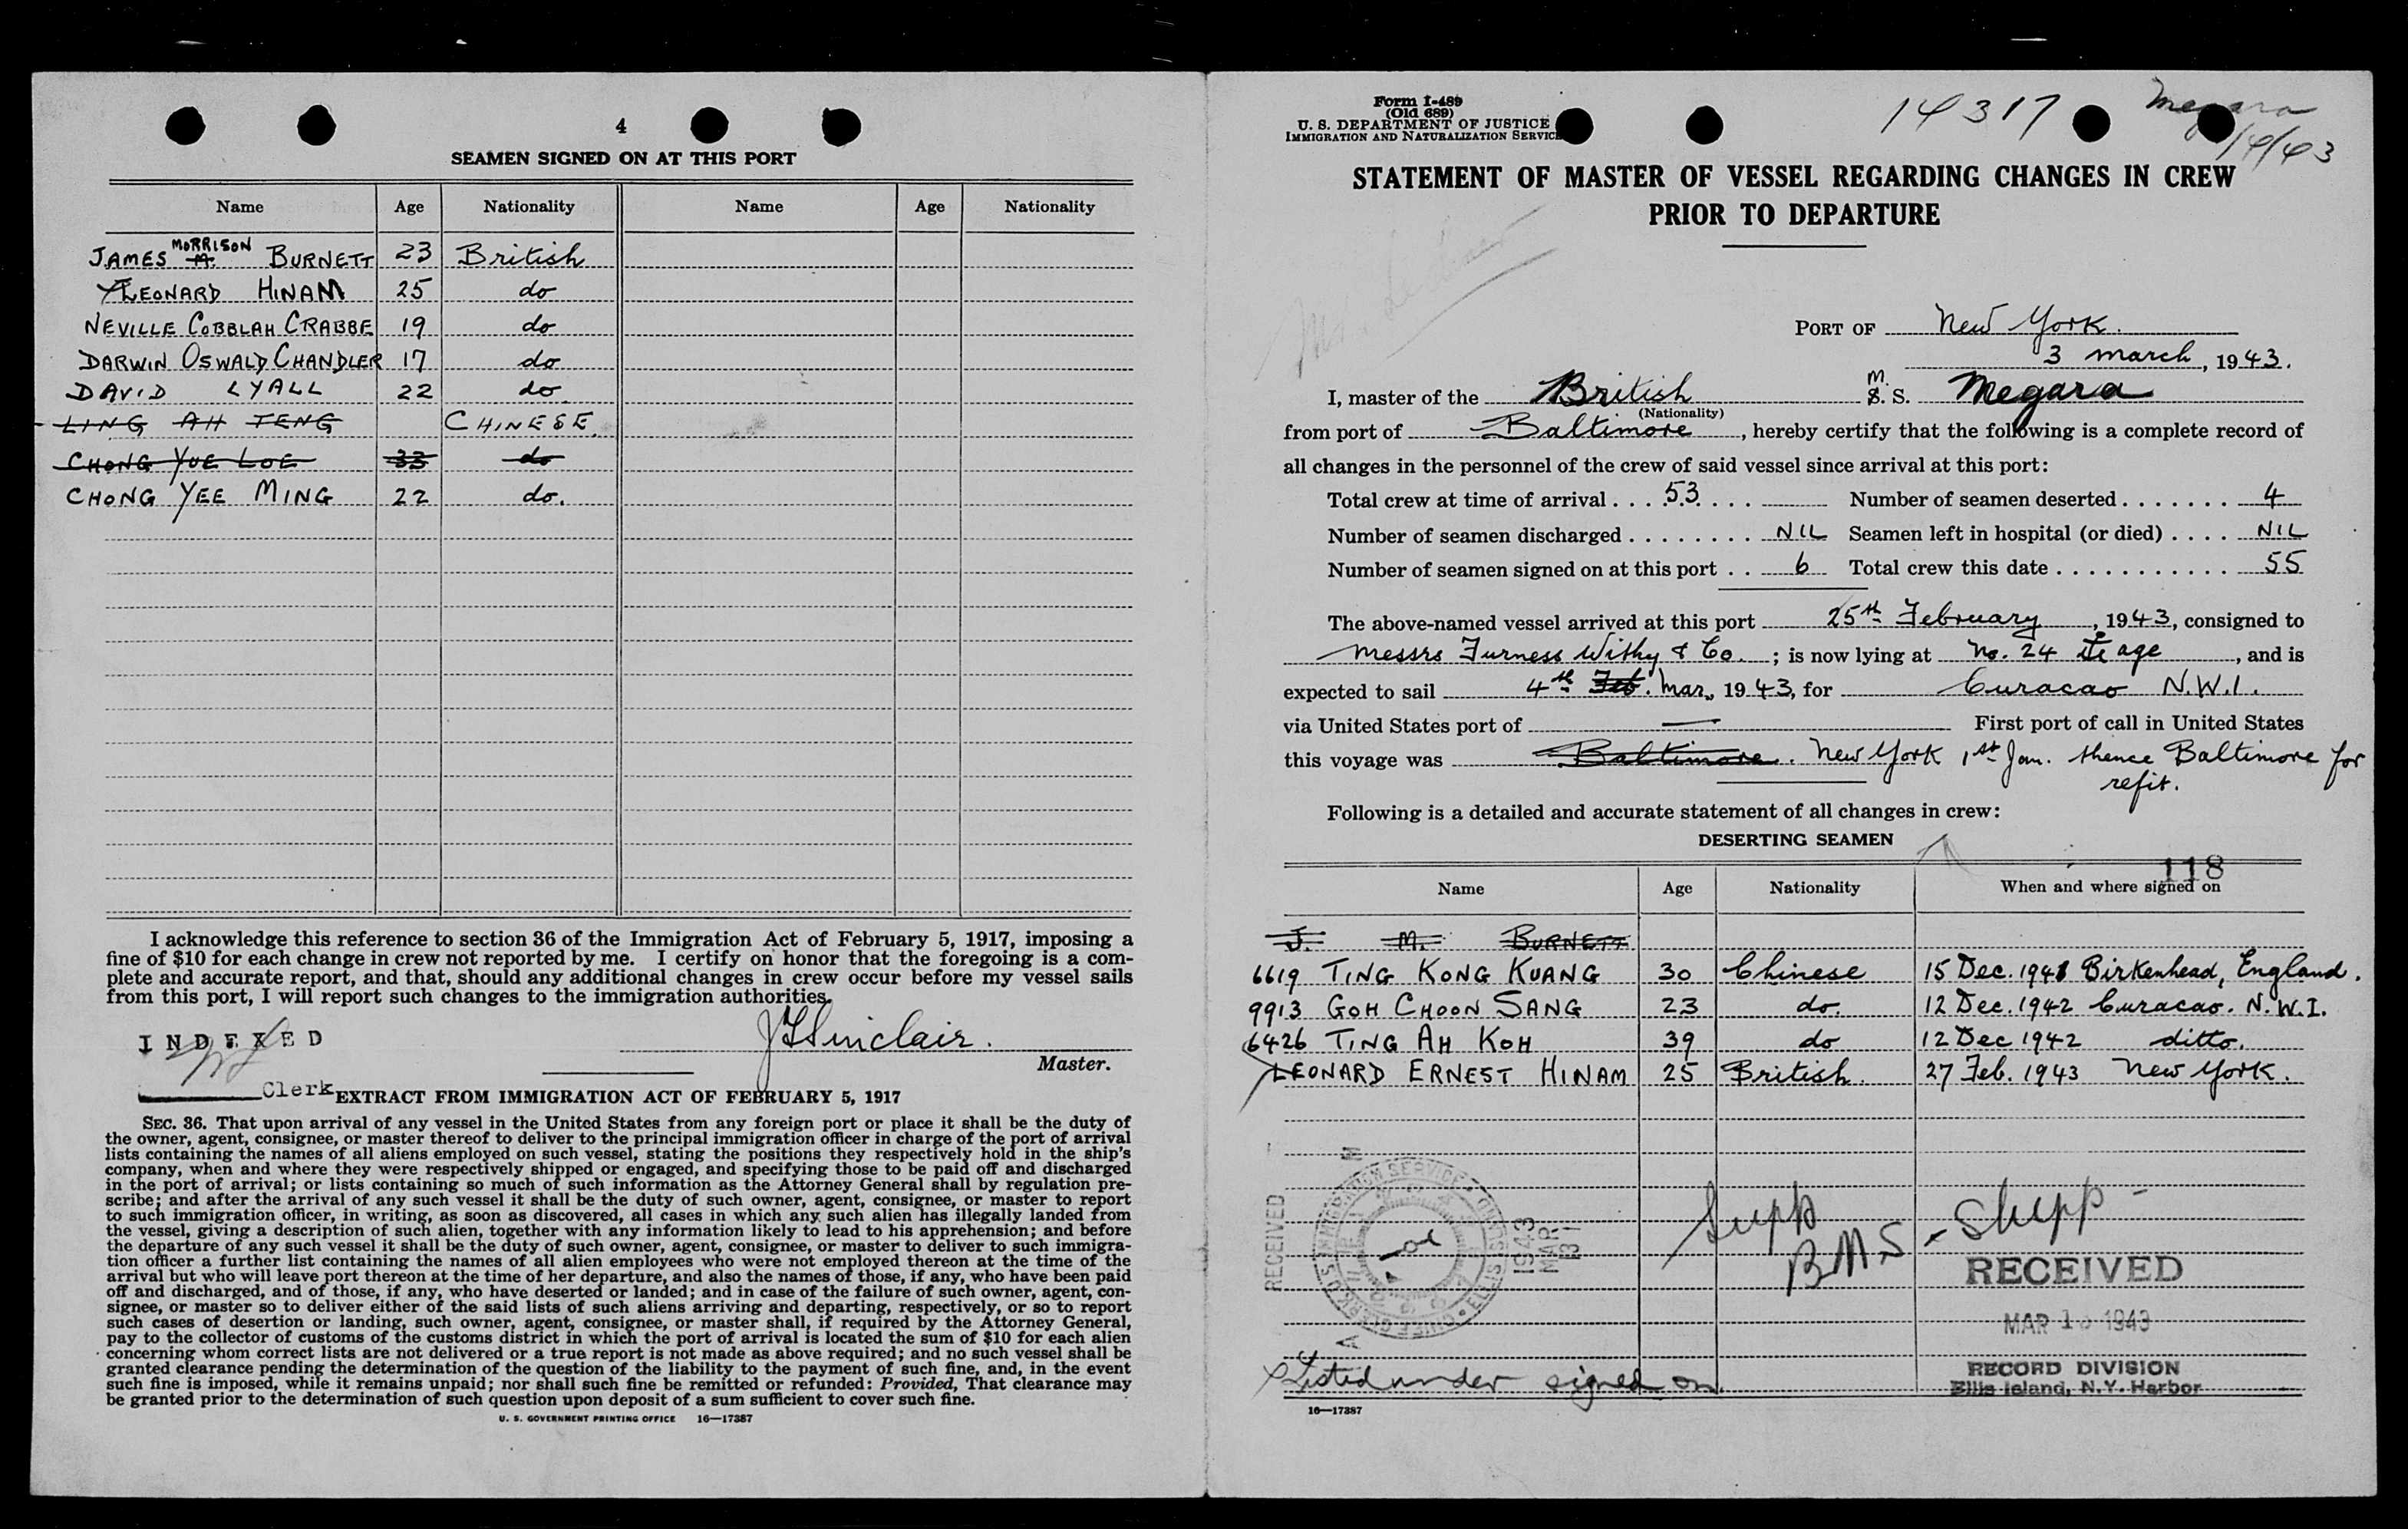 4
SEAMEN SIGNED ON AT THIS PORT
Name Age Nationality Name Age Nationality
JAMES M. MORRISON BURNETT 23 British
LEONARD HINAM 25 do
NEVILLE COBBLAH CRABBE 19 do
DARWIN OSWALD CHANDLER 17 do
DAVID LYALL 22 do
LING AH TENG CHINESE
CHONG YUE LOE 33 do
CHONG YEE MING 22 do.
I acknowledge this reference to section 36 of the Immigration Act of February 5, 1917, imposing a
fine of $10 for each change in crew not reported by me. I certify on honor that the foregoing is a com-
plete and accurate report, and that, should any additional changes in crew occur before my vessel sails
from this port, I will report such changes to the immigration authorities.
INDEXED
J Sinclair.
Master.
Clerk
EXTRACT FROM IMMIGRATION ACT OF FEBRUARY 5, 1917
SEC. 36. That upon arrival of any vessel in the United States from any foreign port or place it shall be the duty of
the owner, agent, consignee, or master thereof to deliver to the principal immigration officer in charge of the port of arrival
lists containing the names of all aliens employed on such vessel, stating the positions they respectively hold in the ship's
company, when and where they were respectively shipped or engaged, and specifying those to be paid off and discharged
in the port of arrival; or lists containing so much of such information as the Attorney General shall by regulation pre-
scribe; and after the arrival of any such vessel it shall be the duty of such owner, agent, consignee, or master to report
to such immigration officer, in writing, as soon as discovered, all cases in which any such alien has illegally landed from
the vessel, giving a description of such alien, together with any information likely to lead to his apprehension; and before
the departure of any such vessel it shall be the duty of such owner, agent, consignee, or master to deliver to such immigra-
tion officer a further list containing the names of all alien employees who were not employed thereon at the time of the
arrival but who will leave port thereon at the time of her departure, and also the names of those, if any, who have been paid
off and discharged, and of those, if any, who have deserted or landed; and in case of the failure of such owner, agent, con-
signee, or master so to deliver either of the said lists of such aliens arriving and departing, respectively, or so to report
such cases of desertion or landing, such owner, agent, consignee, or master shall, if required by the Attorney General,
pay to the collector of customs of the customs district in which the port of arrival is located the sum of $10 for each alien
concerning whom correct lists are not delivered or a true report is not made as above required; and no such vessel shall be
granted clearance pending the determination of the question of the liability to the payment of such fine, and, in the event
such fine is imposed, while it remains unpaid; nor shall such fine be remitted or refunded: Provided, That clearance may
be granted prior to the determination of such question upon deposit of a sum sufficient to cover such fine.
U. S. GOVERNMENT PRINTING OFFICE 16—17387
Form I-489
(Old 689)
U. S. DEPARTMENT OF JUSTICE
IMMIGRATION AND NATURALIZATION SERVICE
14317
Megara
STATEMENT OF MASTER OF VESSEL REGARDING CHANGES IN CREW
PRIOR TO DEPARTURE
PORT OF New York.
3 March, 1943.
I, master of the British M. S. S. Megara
(Nationality)
from port of Baltimore, hereby certify that the following is a complete record of
all changes in the personnel of the crew of said vessel since arrival at this port:
Total crew at time of arrival . . . 53 . . . . Number of seamen deserted . . . . . . . 4
Number of seamen discharged . . . . . . . . NIL Seamen left in hospital (or died) . . . . NIL
Number of seamen signed on at this port . . 6 Total crew this date . . . . . . . . . . . 55
The above-named vessel arrived at this port 25th February, 1943, consigned to
Messrs Furness Withy & Co. ; is now lying at No. 24 age, and is
expected to sail 4th Feb. Mar., 1943, for Curacao N.W.I.
via United States port of — First port of call in United States
this voyage was Baltimore. New York 1st Jan. thence Baltimore for
refit.
Following is a detailed and accurate statement of all changes in crew:
DESERTING SEAMEN
118
Name Age Nationality When and where signed on
J. M. BURNETT
6619 TING KONG KUANG 30 Chinese 15 Dec. 1941 Birkenhead, England.
9913 GOH CHOON SANG 23 do. 12 Dec. 1942 Curacao. N.W.I.
6426 TING AH KOH 39 do 12 Dec 1942 ditto.
LEONARD ERNEST HINAM 25 British. 27 Feb. 1943 New York.
RECEIVED
1943 MAR 13
Supp
BMS - Shipp -
RECEIVED
MAR 1 1943
RECORD DIVISION
Ellis Island, N.Y. Harbor
Listed under signed on.
16—17387